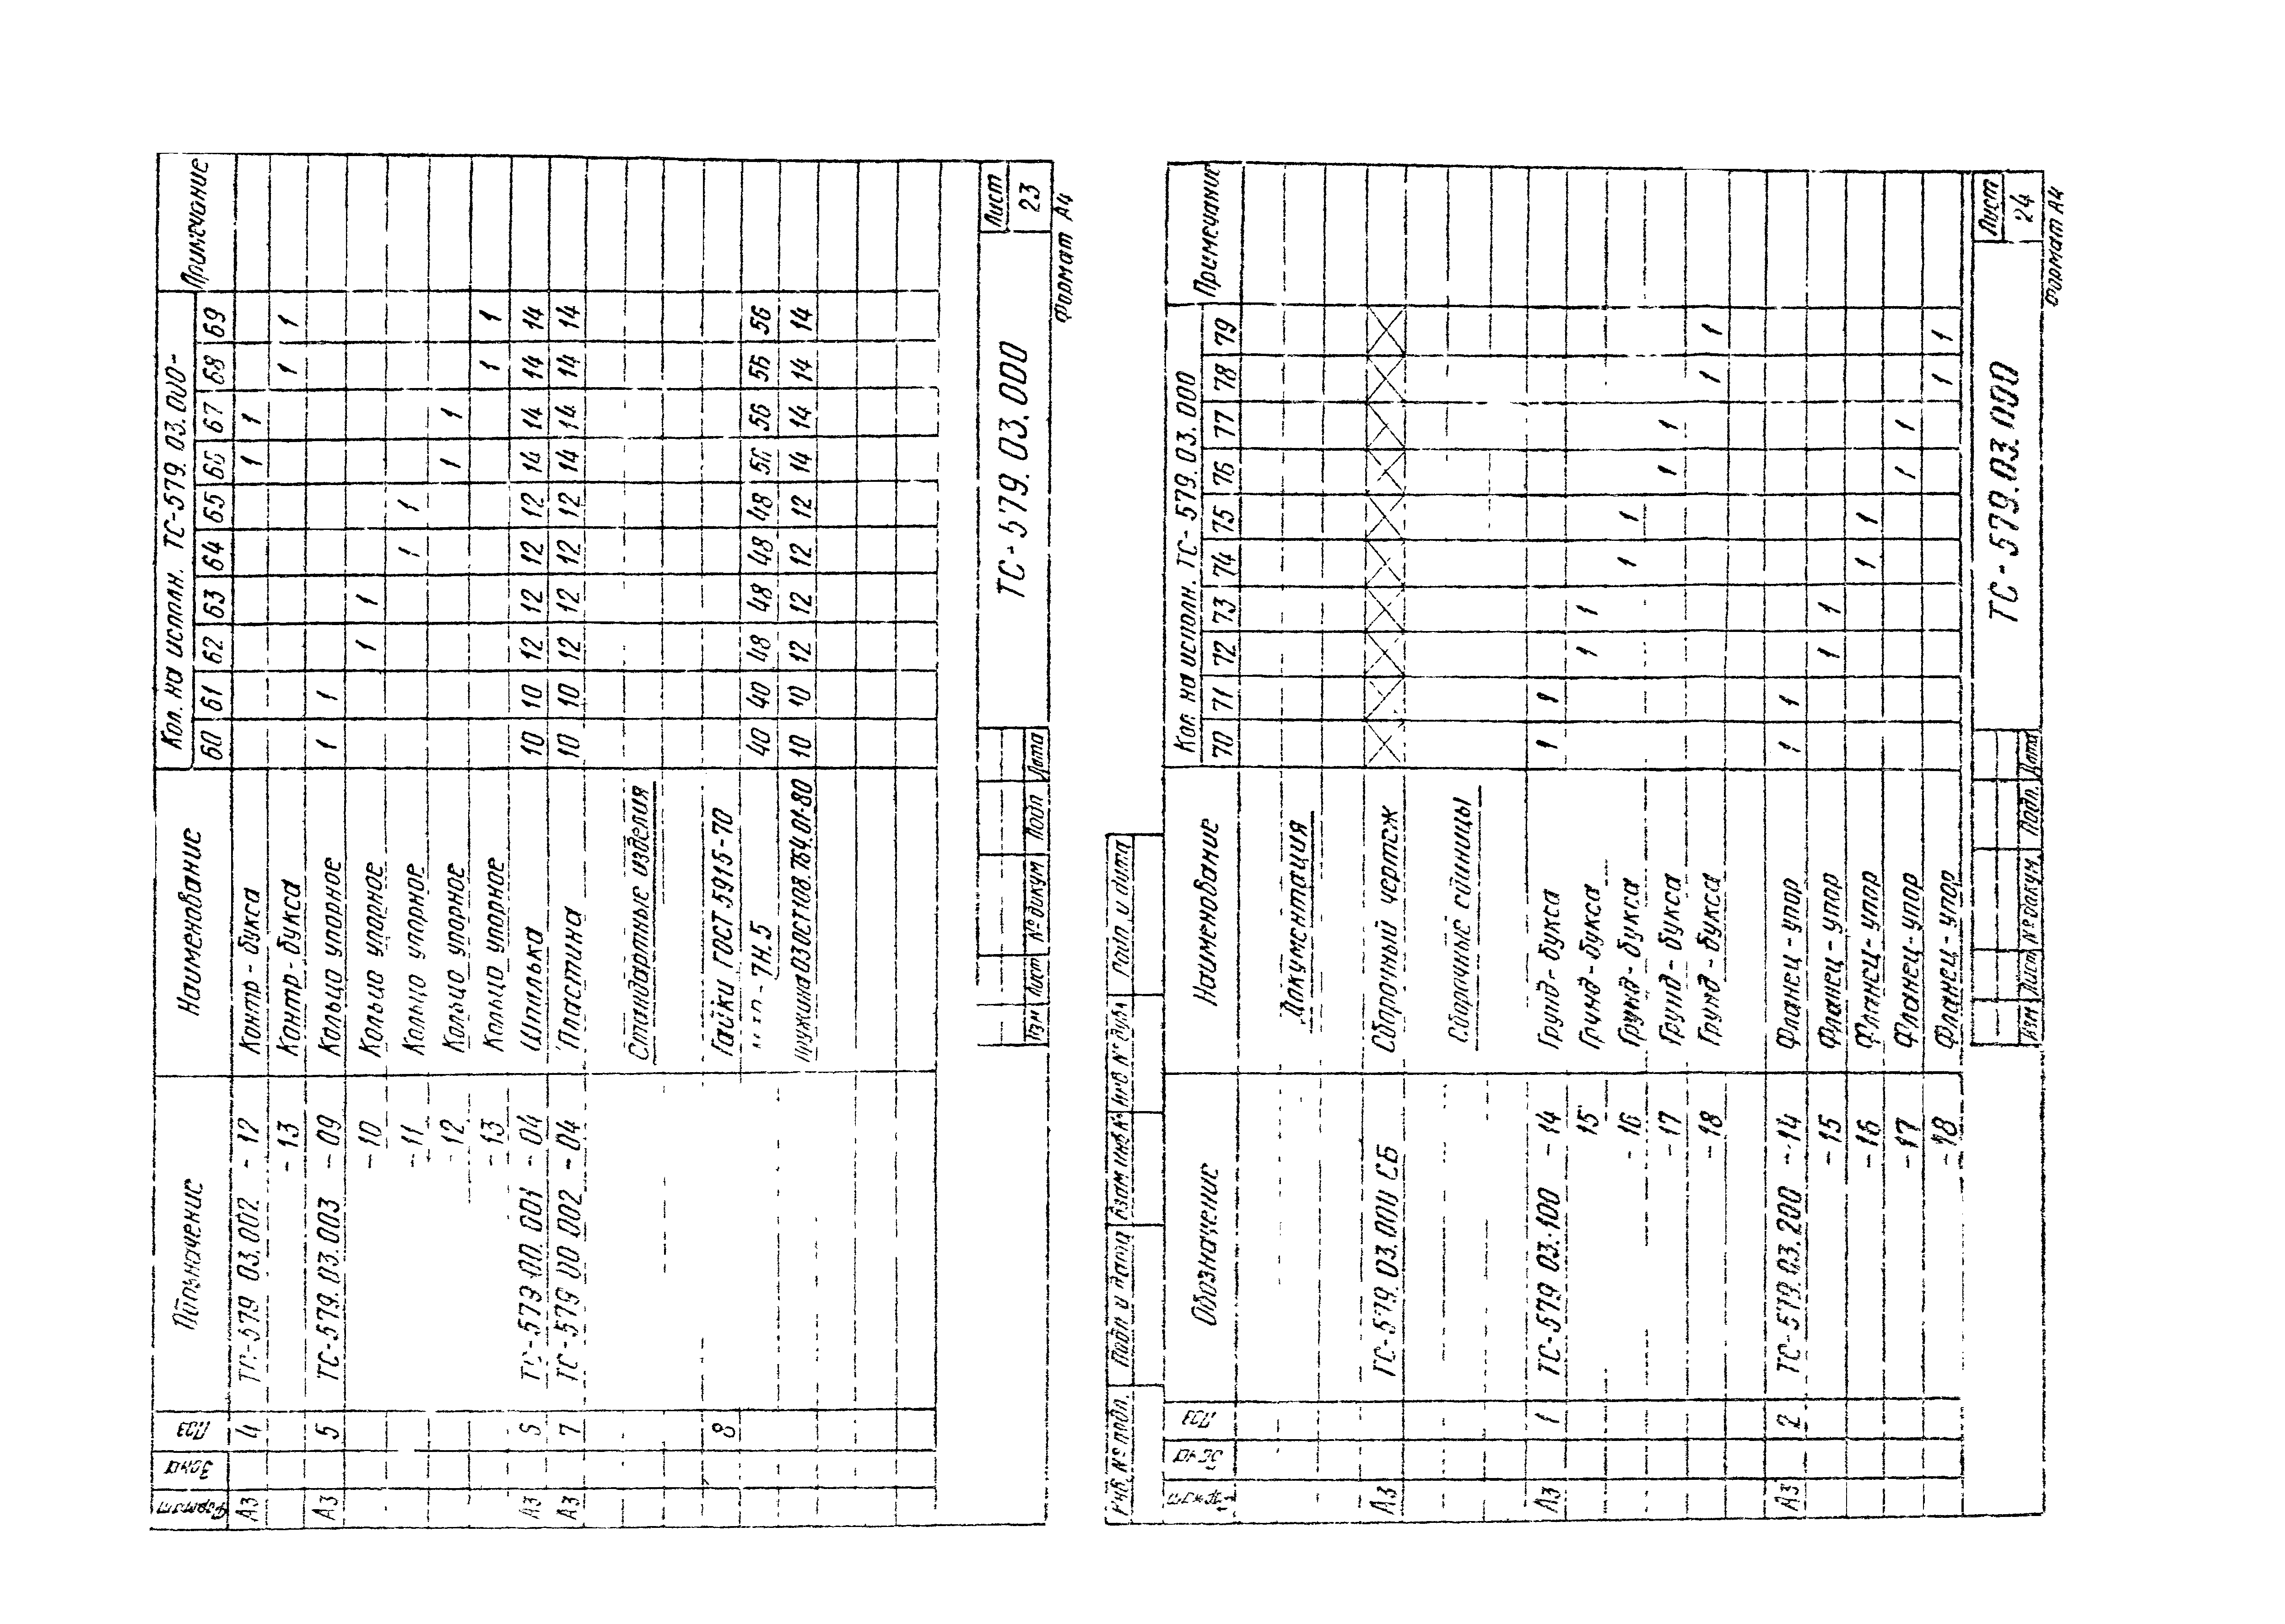 Формат Зона Поз Обозначение Наименование Кол. на исполн. ТС-579.03.000- Примечание
60 61 62 63 64 65 66 67 68 69
А3 4 ТС-579 03.002 -12 Контр-букса 1 1
-13 Контр-букса 1 1
А3 5 ТС-579.03.003 -09 Кольцо упорное 1 1
-10 Кольцо упорное 1 1
-11 Кольцо упорное 1 1
-12 Кольцо упорное 1 1
-13 Кольцо упорное 1 1
А3 6 ТС-579.00.001 -04 Шпилька 10 10 12 12 12 12 14 14 14 14
А3 7 ТС-579 00 002 -04 Пластина 10 10 12 12 12 12 14 14 14 14
Стандартные изделия
8 Гайки ГОСТ 5915-70
-7Н.5 40 40 48 48 48 48 56 56 56 56
Пружина 03 ОСТ108.764.01-80 10 10 12 12 12 12 14 14 14 14
Изм Лист № докум Подп Дата
ТС-579.03.000
Лист
23
Формат А4
Инв. № подл. Подп и дата Взам инв № Инв № дубл Подп. и дата
Формат Зона Поз Обозначение Наименование Кол на исполн. ТС-579.03.000 Примечание
70 71 72 73 74 75 76 77 78 79
Документация
А3 ТС-579.03.000 СБ Сборочный чертеж
Сборочные единицы
А3 1 ТС-579 03.100 -14 Грунд-букса 1 1
15 Грунд-букса 1 1
-16 Грунд-букса 1 1
-17 Грунд-букса 1 1
-18 Грунд-букса 1 1
А3 2 ТС-579.03.200 -14 Фланец-упор 1 1
-15 Фланец-упор 1 1
-16 Фланец-упор 1 1
-17 Фланец-упор 1 1
-18 Фланец-упор 1 1
Изм Лист № докум. Подп. Дата
ТС-579.03.000
Лист
24
Формат А4